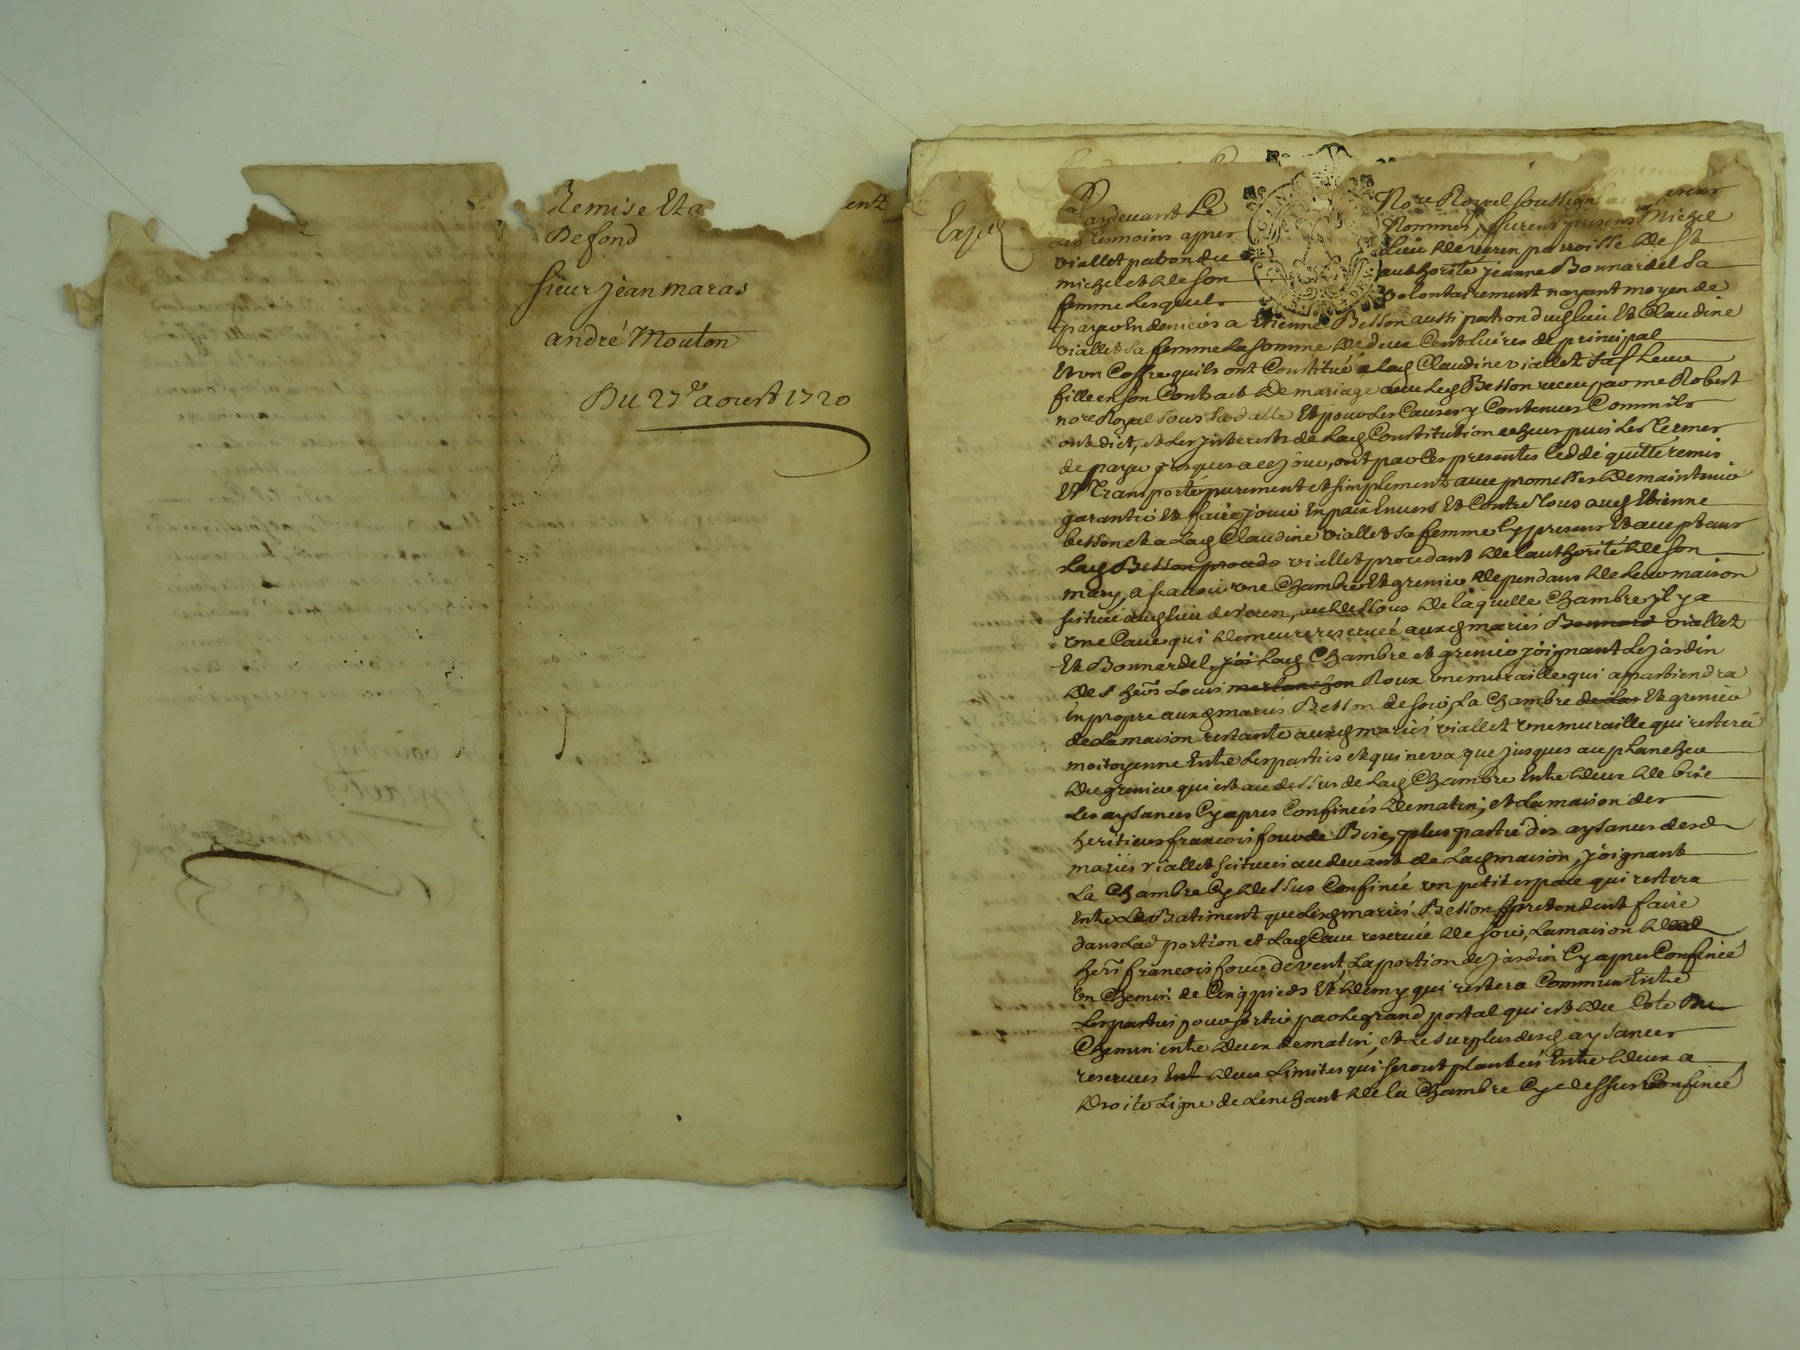 Remise Et a ent
De fond
sieur jean maras
andré Mouton
Du 27e aoust 1720
Expé
Pardevant Le Nore Royal soussigné
Les tesmoins apres Nommes, furent presens Michel
viallet patron du Lieu de veren parroisse de St
michel et de son authorité jeanne Bonnardel sa
femme Lesquels volontairement nayant moyen de
payer En deniers a Etienne Besson aussi patron dudlieu Et Claudine
viallet sa femme La somme de deux Cent Livres de principal
Et un Coffre quils ont Constitué a lad Claudine viallet Leur
fille en son Contrait de mariage avec led Besson receu par me Robert
nore Royal sous sa datte Et pour Les Causes y Contenues Comm ils
ont dict, et Les jnterests de Lad Constitution escheus puis Les termes
de paye jusques a ce jour, ont par Ces presentes Ceddé quitté remis
Et Transporté purement et simplement avec promesses de maintenir
garantir Et faire jouir En paix Envers Et Contre Tous aud Etienne
besson et a Lad Claudine viallet sa femme Cy presens Et acceptans
Lad Besson proceda viallet procedant de lauthorité de son
mary, a scavoir vne Chambre Et grenier dependans de Leur maison
scituée aud lieu de veren, au dessous de laquelle Chambre jl y a
vne Cave qui demeure reservée auxd mariés Bonnard viallet
Et Bonnardel, joi Lad Chambre et grenier joignant Le jardin
de s hers Louis merlanchon Roux vne muraille qui appartiendra
en propre auxd mariés Besson de soir, La Chambre de Las Et grenier
de La maison restante auxd mariés viallet vne muraille qui restera
moitoyenne Entre Les parties et qui ne va que jusques au plancher
du grenier qui est au dessus de Lad Chambre Entre deux de bise
Les aysances Cy apres Confinées de matin; et La maison des
heritiers francois four de Bise, plus partie des aysances desd
mariés viallet scituées au devant de Lad maison, joignant
La Chambre Cy dessus Confinée vn petit espace qui restera
Entre Le Batiment que Lesd mariés Besson pretendent faire
dans Lad portion et Lad Cave reservée de soir, La maison desd
hers francois four de vent, La portion de jardin Cy apres Confinée
Un Chemin de Cinq pieds Et demy qui restera Commun Entre
Les parties pour sortir par Le grand portal qui est du Coté Du
Chemin entre deux de matin, et Le surplus desd aysances
reservées Ent deux Limites qui seront plantées Entre deux a
Droite Ligne de Lenchant de la Chambre Cy dessus Confinée